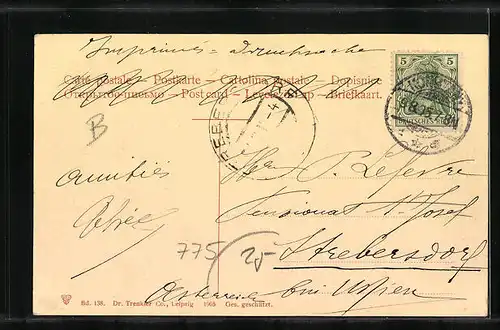 Imprimés = Drucksache
Carte postale – Postkarte – Cartolina postale – Dopisnice
Открытое письмо – Post card – Levelező-Lap – Briefkaart.
5 5
DEUTSCHES REICH
B
Herr P. Lefevre
amitiés
Pensionat St. Josef
Alfred
775
25
Strebersdorf
Österreich bei Wien
Bd. 138. Dr. Trenkler Co., Leipzig 1905 Ges. geschützt.